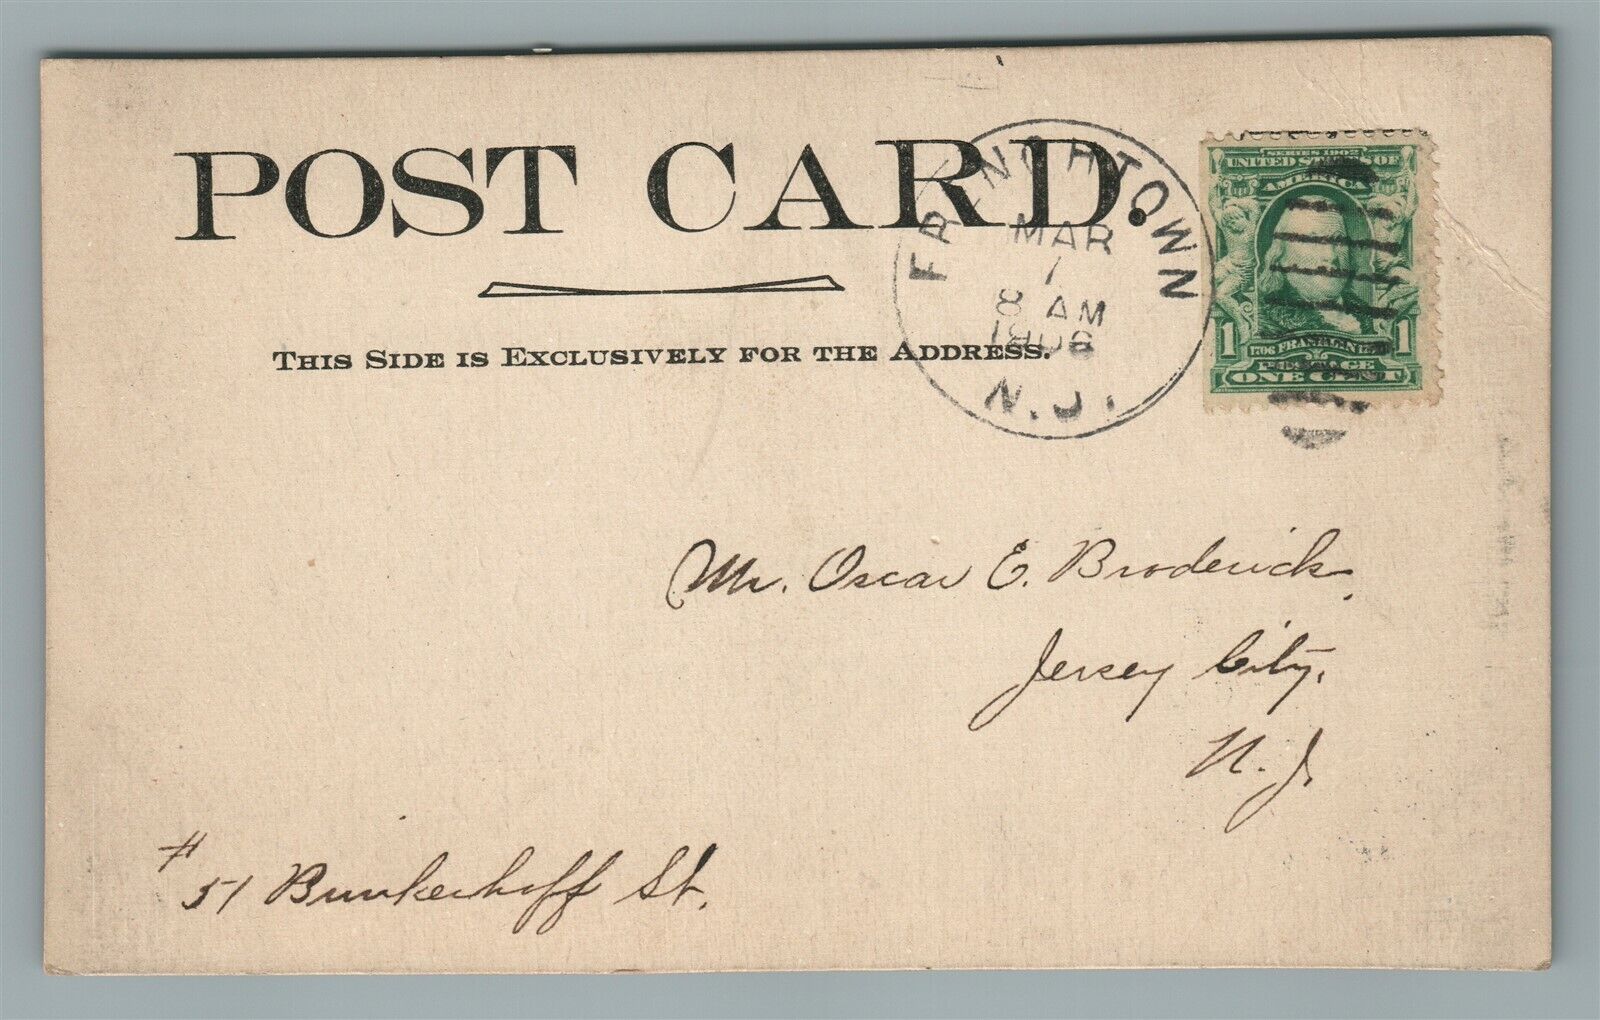 POST CARD.
THIS SIDE IS EXCLUSIVELY FOR THE ADDRESS.
FRENCHTOWN
MAR
1
8 AM
1906
N.J.
SERIES 1902
UNITED STATES OF
AMERICA
1 1
1706 FRANKLIN
POSTAGE
ONE CENT
Mr. Oscar E. Broderick,
Jersey City,
N. J.
#
51 Brinkerhoff St.